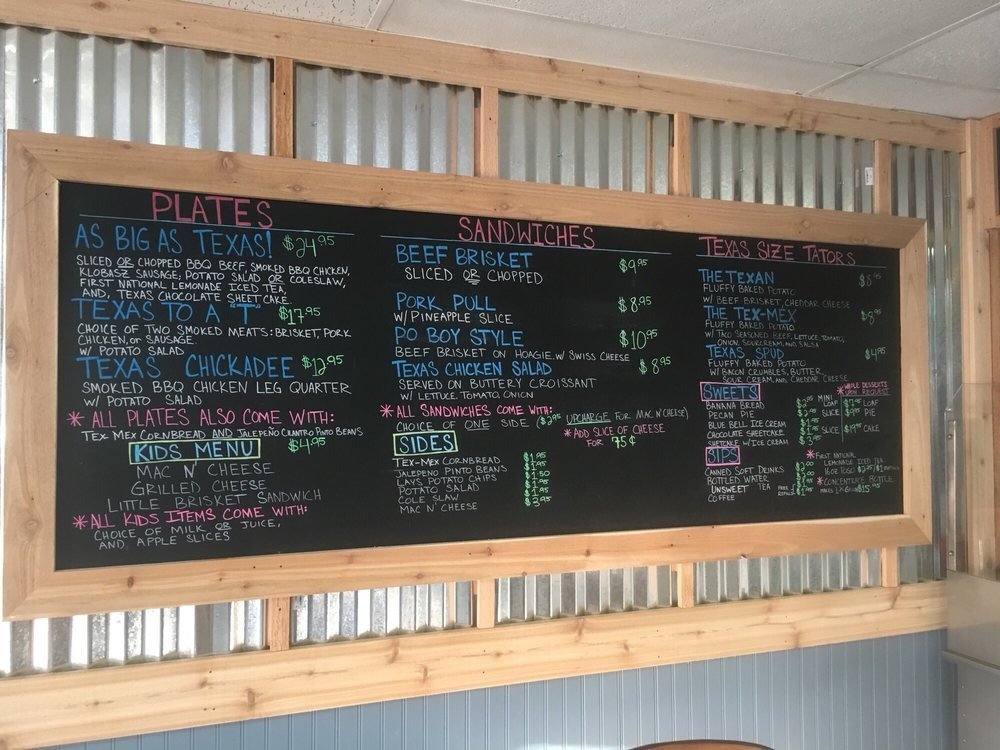 PLATES
AS BIG AS TEXAS! $24.95
SLICED OR CHOPPED BBQ BEEF, SMOKED BBQ CHICKEN,
KLOBASZ SAUSAGE, POTATO SALAD OR COLESLAW,
FIRST NATIONAL LEMONADE ICED TEA,
AND, TEXAS CHOCOLATE SHEET CAKE.
TEXAS TO A "T" $17.95
CHOICE OF TWO SMOKED MEATS: BRISKET, PORK
CHICKEN, OR SAUSAGE
W/ POTATO SALAD
TEXAS CHICKADEE $12.95
SMOKED BBQ CHICKEN LEG QUARTER
W/ POTATO SALAD
* ALL PLATES ALSO COME WITH:
TEX MEX CORNBREAD AND JALEPEÑO CILANTRO PINTO BEANS
KIDS MENU $4.95
MAC N' CHEESE
GRILLED CHEESE
LITTLE BRISKET SANDWICH
* ALL KIDS ITEMS COME WITH:
CHOICE OF MILK OR JUICE,
AND APPLE SLICES
SANDWICHES
BEEF BRISKET $9.95
SLICED OR CHOPPED
PORK PULL $8.95
W/ PINEAPPLE SLICE
PO BOY STYLE $10.95
BEEF BRISKET ON HOAGIE W/ SWISS CHEESE
TEXAS CHICKEN SALAD $8.95
SERVED ON BUTTERY CROISSANT
W/ LETTUCE, TOMATO, ONION
* ALL SANDWICHES COME WITH:
CHOICE OF ONE SIDE ($2.95 UPCHARGE FOR MAC N' CHEESE)
* ADD SLICE OF CHEESE
FOR 75¢
SIDES
TEX-MEX CORNBREAD $1.95
JALEPENO PINTO BEANS
LAYS POTATO CHIPS
POTATO SALAD
COLE SLAW
MAC N' CHEESE
TEXAS SIZE TATORS
THE TEXAN $8.95
FLUFFY BAKED POTATO
W/ BEEF BRISKET, CHEDDAR CHEESE
THE TEX-MEX $8.95
FLUFFY BAKED POTATO
W/ TACO SEASONED BEEF, LETTUCE, TOMATO,
ONION, SOUR CREAM, AND SALSA
TEXAS SPUD $4.95
FLUFFY BAKED POTATO
W/ BACON CRUMBLES, BUTTER,
SOUR CREAM, AND CHEDDAR CHEESE
SWEETS
* WHOLE DESSERTS
UPON REQUEST
BANANA BREAD MINI LOAF LOAF
PECAN PIE SLICE PIE
BLUE BELL ICE CREAM
CHOCOLATE SHEETCAKE SLICE CAKE
SHETCAKE W/ ICE CREAM
SIPS
CANNED SOFT DRINKS
BOTTLED WATER
UNSWEET TEA FREE REFILLS
COFFEE
* FIRST NATIONAL
LEMONADE ICED TEA
* CONCENTRATE BOTTLE